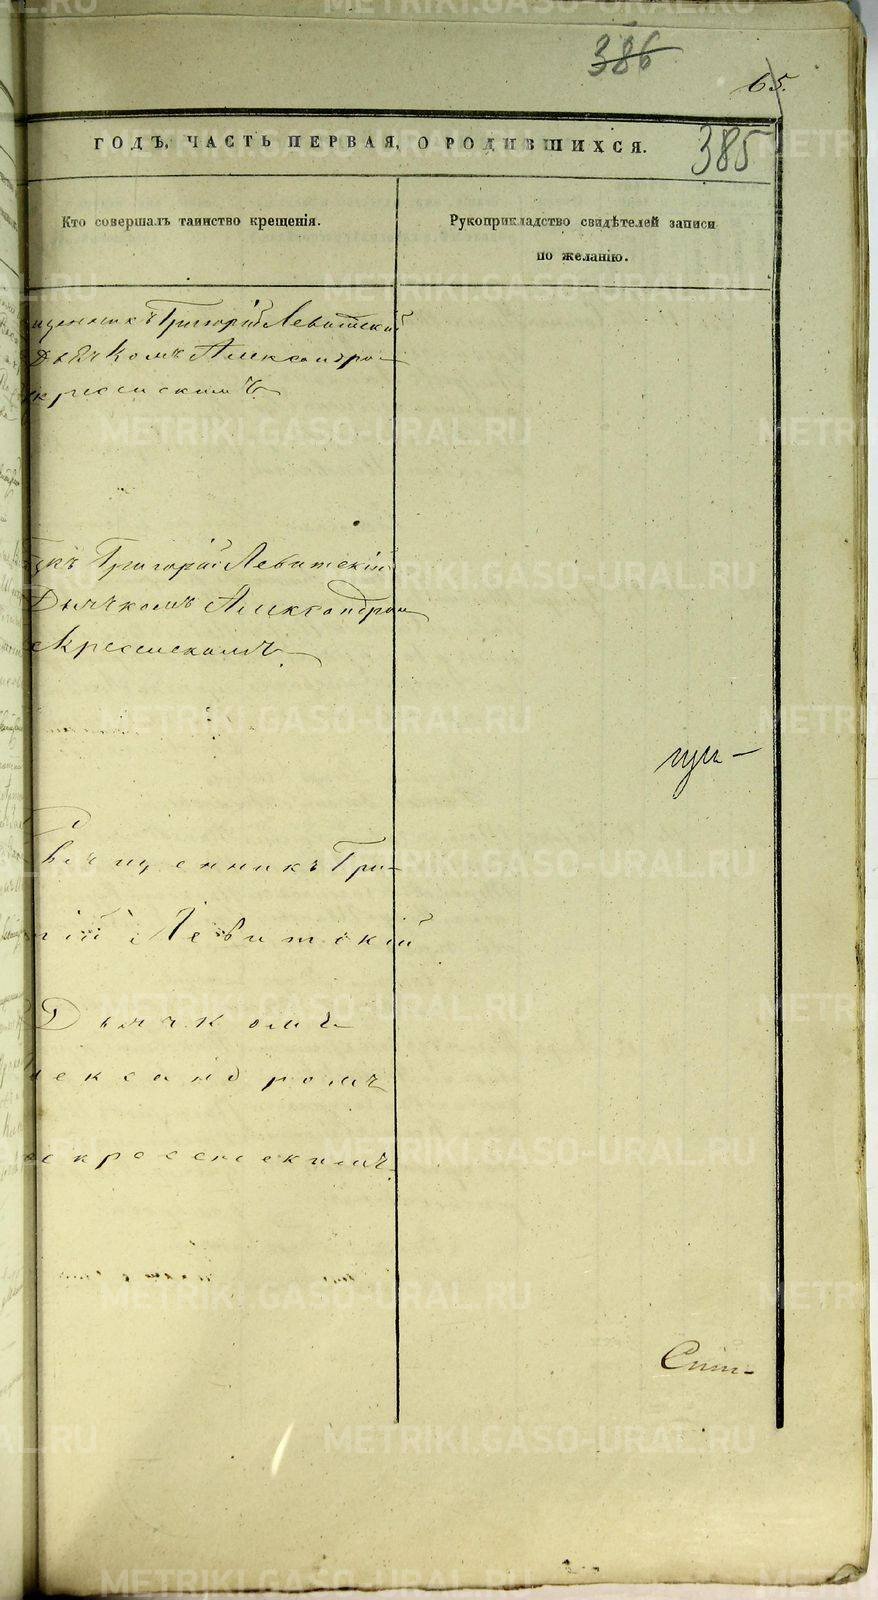 386
65.
ГОДЪ, ЧАСТЬ ПЕРВАЯ, О РОДИВШИХСЯ.
385
Кто совершалъ таинство крещенія.
Рукоприкладство свидѣтелей записи
по желанію.
щенникъ Григорій Левитскій
Дьячкомъ Александро-
кресенскимъ
Григорій Левитскій
Дьячкомъ Александром
скресенскимъ
Священникъ Гри-
рій Левитскій
Дьячкомъ
лександромъ
оскресенскимъ
METRIKI.GASO-URAL.RU